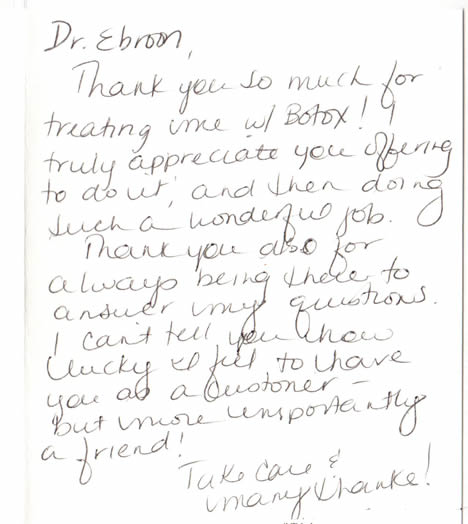 Dr. Ebroon,
Thank you so much for
treating me w/ Botox! I
truly appreciate you offering
to do it, and then doing
such a wonderful job.
Thank you also for
always being there to
answer my questions.
I can't tell you how
lucky I feel to have
you as a customer -
but more importantly
a friend!
Take care &
many thanks!